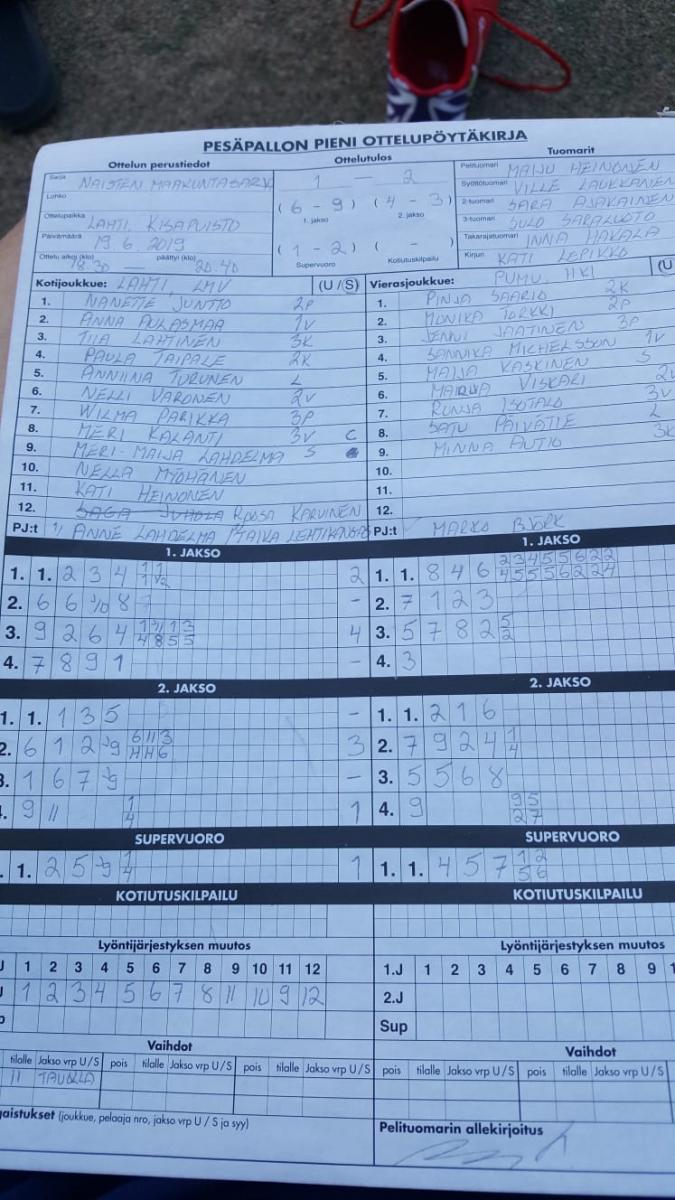 PESÄPALLON PIENI OTTELUPÖYTÄKIRJA
Ottelun perustiedot
Ottelutulos
Tuomarit
Sarja NAISTEN MAAKUNTASARJA
1 — 2
Pelituomari MAIJU HEINONEN
Lohko
(6 - 9) (4 - 3)
Syöttötuomari VILLE LAUKKANEN
1. jakso 2. jakso
2-tuomari SARA AJAKAINEN
Ottelupaikka LAHTI, KISAPUISTO
3-tuomari SULO SARALUOTO
Päivämäärä 19.6.2019
(1 - 2) ( - )
Takarajatuomari INNA HAKALA
Ottelu alkoi (klo) 18.30 — päättyi (klo) 20.40
Supervuoro Kotiutuskilpailu
Kirjuri KATI LOPIKKO
Kotijoukkue: LAHTI, LMV (U/S)
1. NANETTE JUNTTO 2P
2. ANNA AULASMAA 1V
3. TIIA LAHTINEN 3K
4. PAULA TAIPALE 2K
5. ANNIINA TURUNEN L
6. NELLI VARONEN 2V
7. WILMA PARIKKA 3P
8. MERI KALANTI 3V C
9. MERI-MAIJA LAHDELMA S
10. NELLA MYÖHÄNEN
11. KATI HEINONEN
12. SAGA JUHOLA ROOSA KARVINEN
PJ:t 1/ ANNE LAHDELMA / TAIKA LEHTIKANGAS
Vierasjoukkue: PUMU, HKI (U
1. PINJA SAARIO 2K
2. MONIKA TORKKI 2P
3. JENNI JAATINEN 3P
4. SANNIKA MICHELSSON 1V
5. MAIJA KASKINEN S
6. VISKARI 2V
7. RONJA ISOTALO 3V
8. SATU PÄIVÄTIE L
9. MINNA AUTIO 3K
10.
11.
12.
PJ:t MARKO BJÖRK
1. JAKSO
1. 1. 2 3 4 2
2. 6 6 8 -
3. 9 2 6 4 4
4. 7 8 9 1 -
2. JAKSO
1. 1. 1 3 5 -
2. 6 1 2 9 3
3. 1 6 7 9 -
. 9 11 1/4 1
SUPERVUORO
. 1. 2 5 9 1/4 1
KOTIUTUSKILPAILU
Lyöntijärjestyksen muutos
J 1 2 3 4 5 6 7 8 9 10 11 12
J 1 2 3 4 5 6 7 8 11 10 9 12
Vaihdot
tilalle Jakso vrp U/S pois tilalle Jakso vrp U/S pois tilalle Jakso vrp U/S
11 TAUOLLA
gaistukset (joukkue, pelaaja nro, jakso vrp U/S ja syy)
1. JAKSO
1. 1. 8 4 6
2. 7 1 2 3
3. 5 7 8 2 5/2
4. 3
2. JAKSO
1. 1. 2 1 6
2. 7 9 2 4 1/4
3. 5 5 6 8
4. 9 9/2 5/7
SUPERVUORO
1. 1. 4 5 7 1/5 2/6
KOTIUTUSKILPAILU
Lyöntijärjestyksen muutos
1.J 1 2 3 4 5 6 7 8 9 1
2.J
Sup
Vaihdot
pois tilalle Jakso vrp U/S pois tilalle Jakso vrp U/S pois
Pelituomarin allekirjoitus